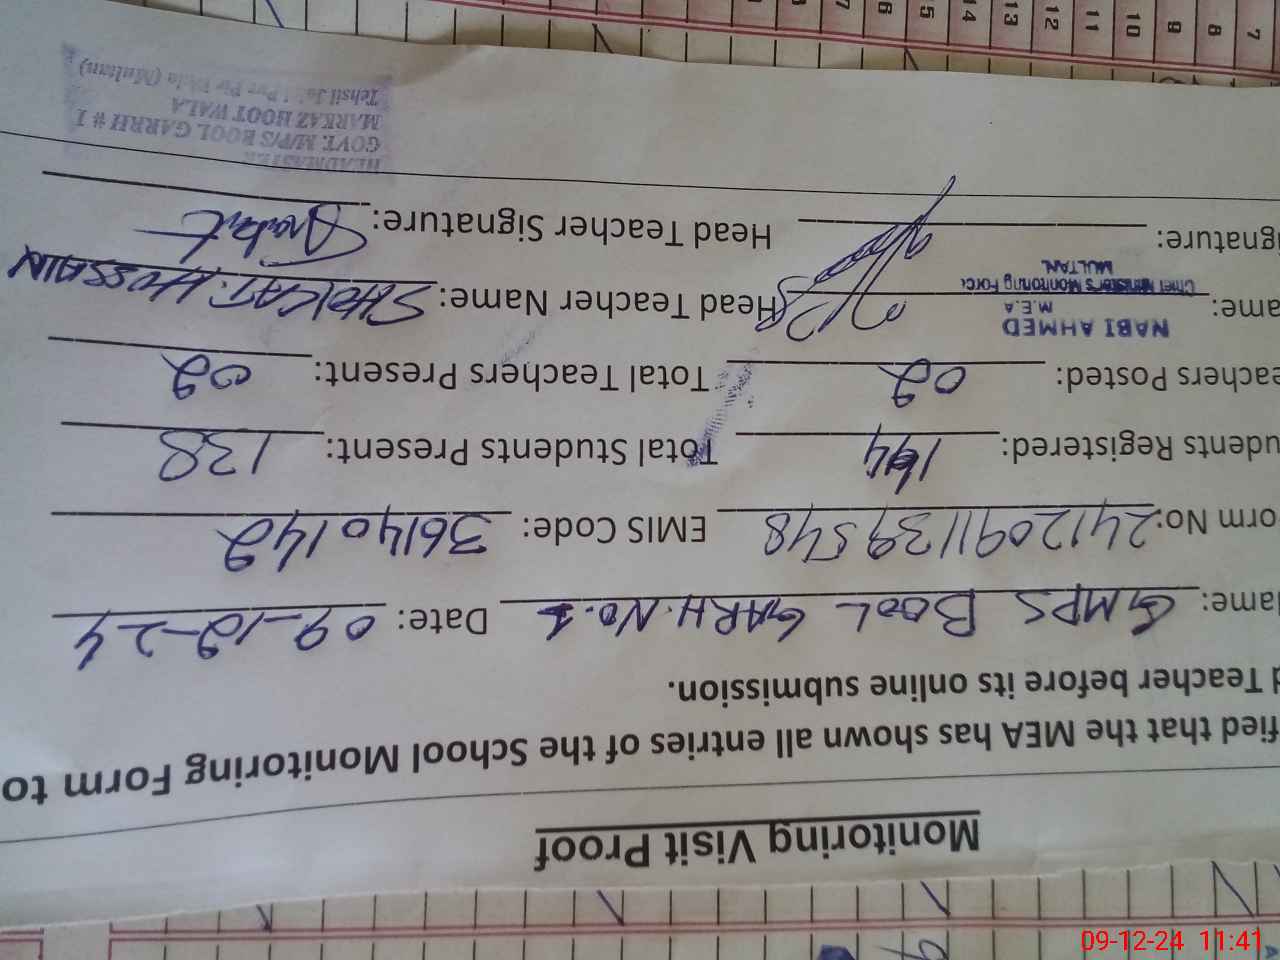 Monitoring Visit Proof
fied that the MEA has shown all entries of the School Monitoring Form to
d Teacher before its online submission.
ame: GMPS BOOL GARH.No.1 Date: 09-12-24
orm No: 2412091139548 EMIS Code: 36140142
udents Registered: 144 Total Students Present: 138
eachers Posted: 02 Total Teachers Present: 02
NABI AHMED
M.E.A
ame: Chief Minister's Monitoring Force Head Teacher Name: SHOKAT.HUSSAIN
MULTAN.
ignature: Head Teacher Signature:
HEADMASTER
GOVT. M/P/S BOOL GARRH # 1
MARKAZ HOOT WALA
Tehsil Pir Wala (Multan)
7 8 9 10 11 12 13 14 15
09-12-24 11:41